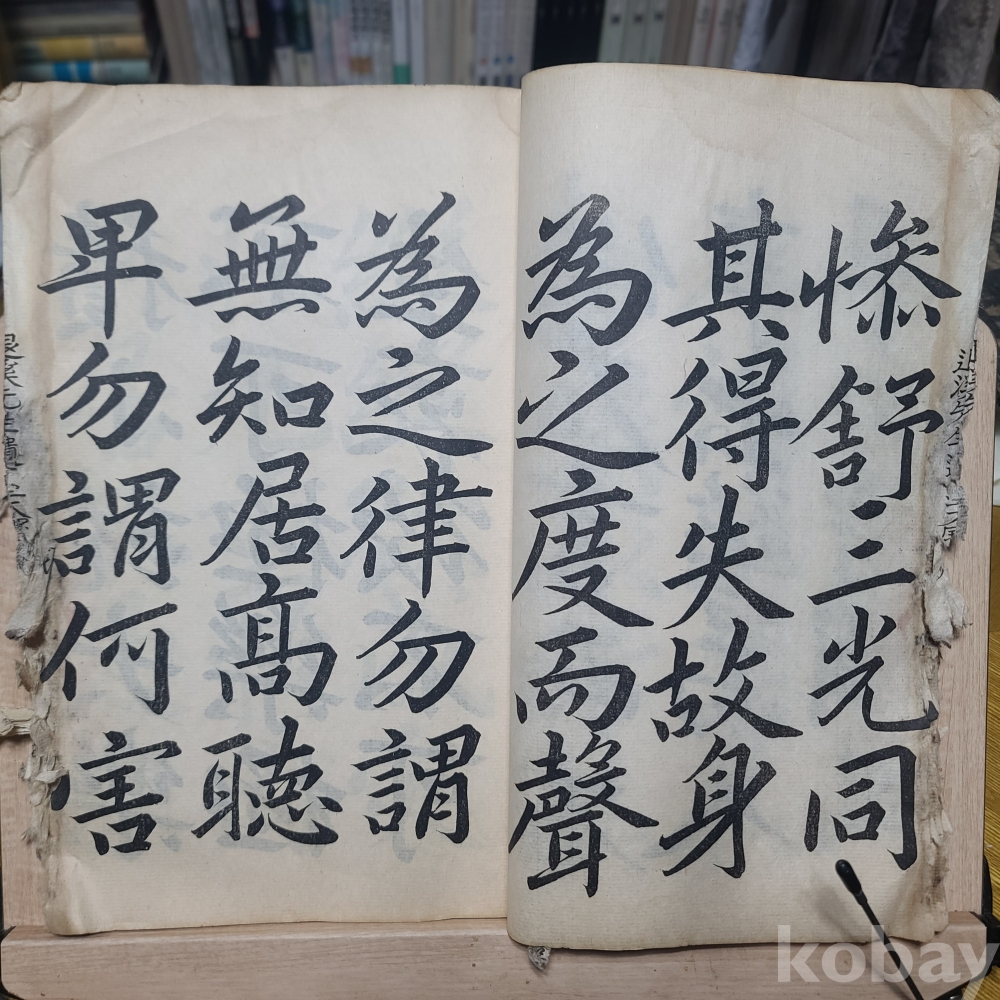 慘舒三光同
其得失故身
為之度而聲
為之律勿謂
無知居高聽
卑勿謂何害
kobay